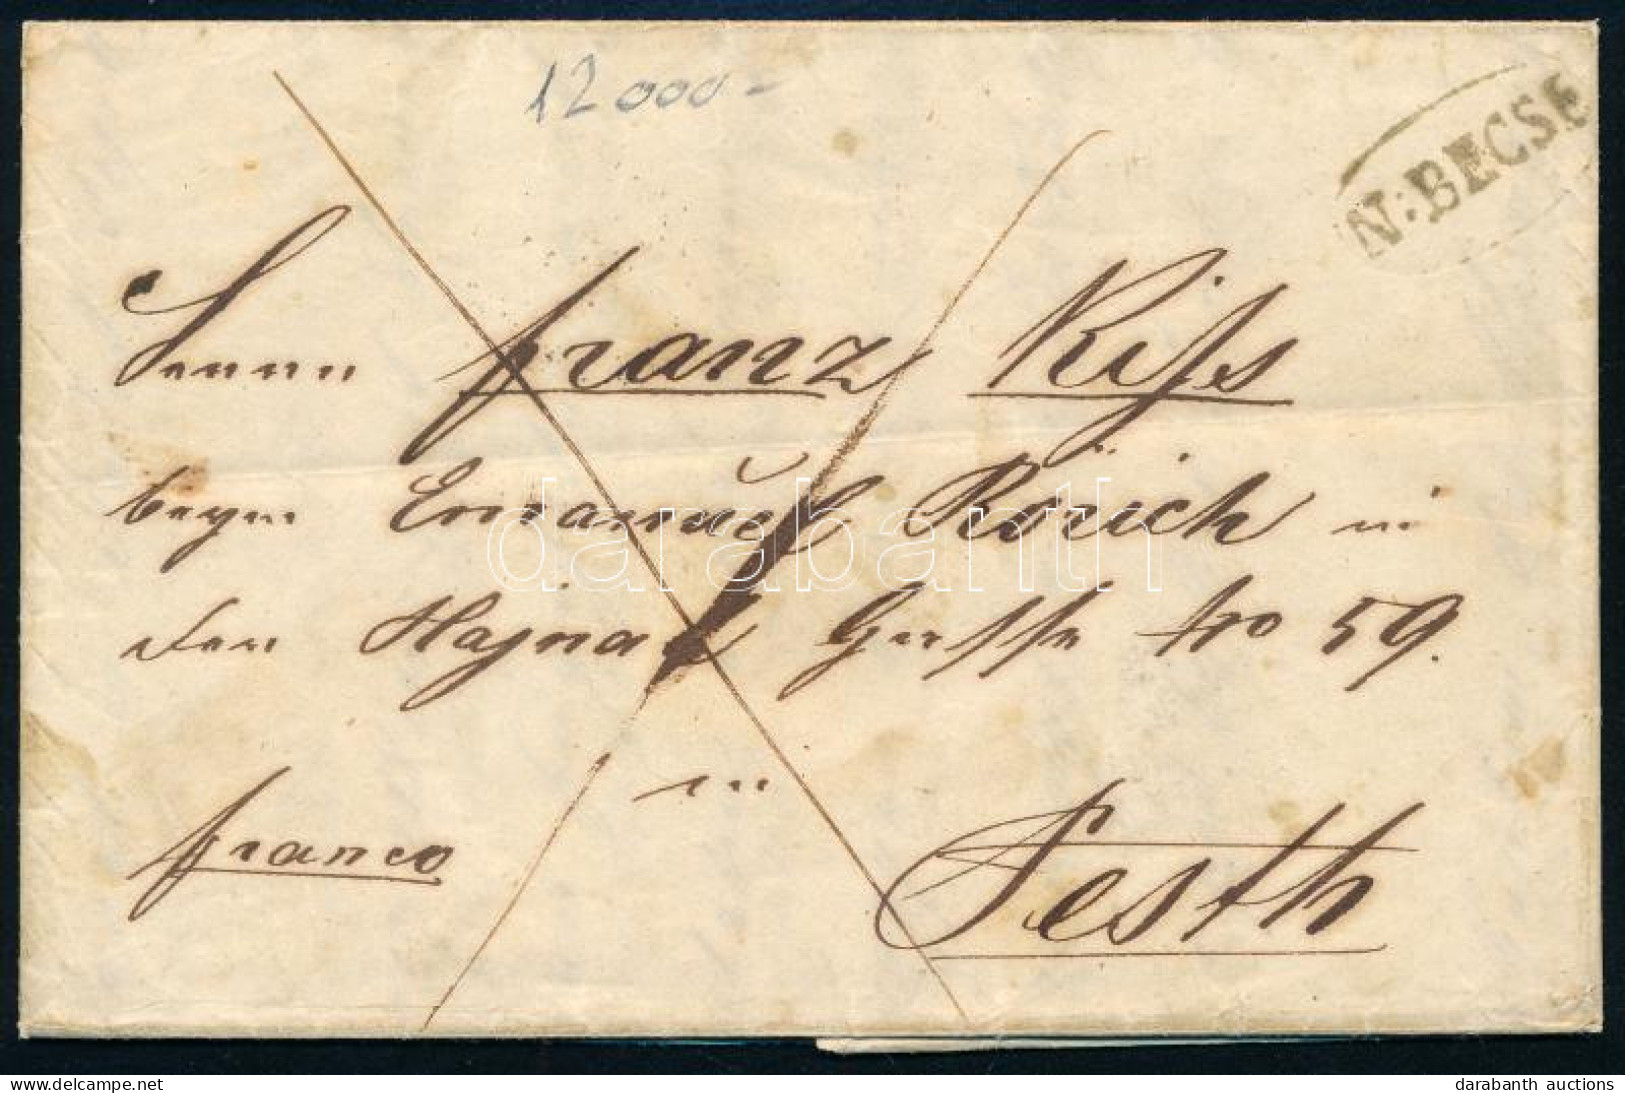 12000-
N: BECSE
Herrn Franz Kiss
beym Emanuel Rörich in
der Hajnal Gasse Nro 59.
in
franco
Pesth
darabanth
darabanth auctions